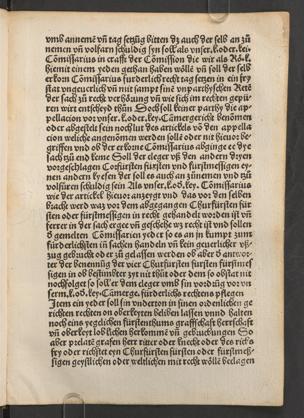 vmb annemē vn̄ tag setzūg bitten dz auch der selb an zů
nemen vn̄ volfarn schuldig syn soll als vnser.k.oder.key.
Cōmissarius in crafft der Cōmission die wir als Rö.k.
hiemit einem yeden gethan haben wölle vn̄ soll der selb
erkorn Cōmissarius fürderlich recht tag setzen in ein fry
stat vngeuerlich vn̄ mit sampt sinē vnparthyschen Retē
der sach zů recht verhörung vn̄ wie sich im rechten gepü
ren wirt entscheyd thůn Doch soll keiner parthy die ap
pellacion vor vnser.k.oder.key.Camergericht benömen
oder abgestelt sein noch lut des artickels vō den appella
cion welche angenōmen werden söllē oder nit hieuor be
griffen vnd ob der erkorne Cōmissarius abginge ee dye
sach zů end keme Soll der cleger vß den andern dryen
vorgeschlagen Corfürsten fürsten vnd fürstmessigen ey
nen andern kyesen der soll es auch an zůnemen vnd zů
volfüren schuldig sein Als vnser.kö.key.Cōmissarius
wie der artickel hieuor anzeygt vnd das vor den selben
bracht werd was vor dem abgegangen Churfürsten für
sten oder fürstmessigen in recht gehandelt worden ist vn̄
ferrer in der sach ergee vn̄ geschehe wz recht ist vnd sollen
d̄ gemelten Cōmissarien yeder so es an in kumpt zum
fürderlichsten in̄ sachen handeln vn̄ kein geuerlicher vß
zug gebrucht oder zů gelassen werden ob aber d̄ antwor
ter der benennūg der vier Churfürsten fürsten fürstmess
igen in obbestimbter zyt nit thüt oder dem so obstat nit
nochfolget so soll er dem cleger vmb sin vordrūg vor vn
serm.kö.key.Camerge.fürderlichs rechtens pflegen
Item ein yeder soll sin vndertan in sinen ordenlichen ge
richten rechten vn oberkeyten beliben lassen vnnd halten
noch eins yegklichen fürstenthums graffschafft herrschafft
vn̄ oberkeyt loblichem herkommē vn̄ gebruchungen So
aber prelatē grafen herr ritter oder knecht oder des rich
fry oder richstet eyn Churfürsten fürsten oder fürstmeß
sigen geystlichen oder weltlichen mit recht wöllē beclagen